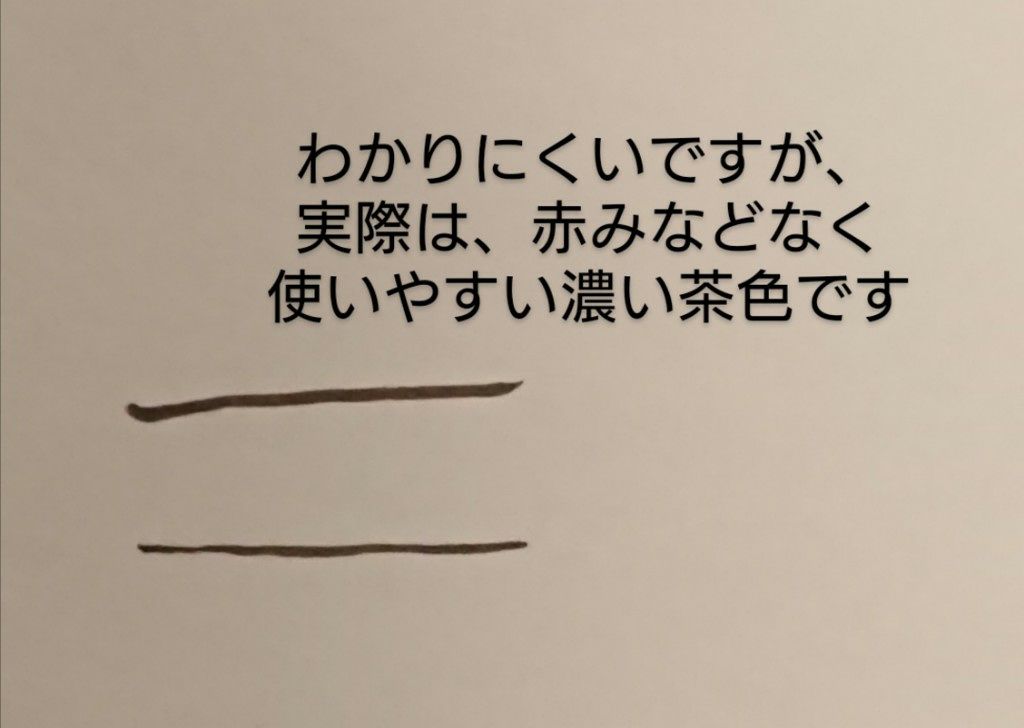 わかりにくいですが、
実際は、赤みなどなく
使いやすい濃い茶色です